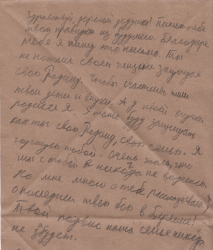 Здравствуй, дорогой дедушка! Пишет тебе
твоя правнучка из будущего. Благодаря
тебе я пишу это письмо. Ты
не жалел своей защищая
свою Родину, чтобы счастливо жили
твои дети и внуки. А у твоей внучки
родился я. Я тоже буду защищать
как ты свою Родину, свою семью. Я
горжусь тобой. Очень жаль, что
мы с тобой никогда не виделись
Но мне много о тебе рассказывали
о последнем твоём бое в
Твой подвиг наша семья никогда
не забудет.